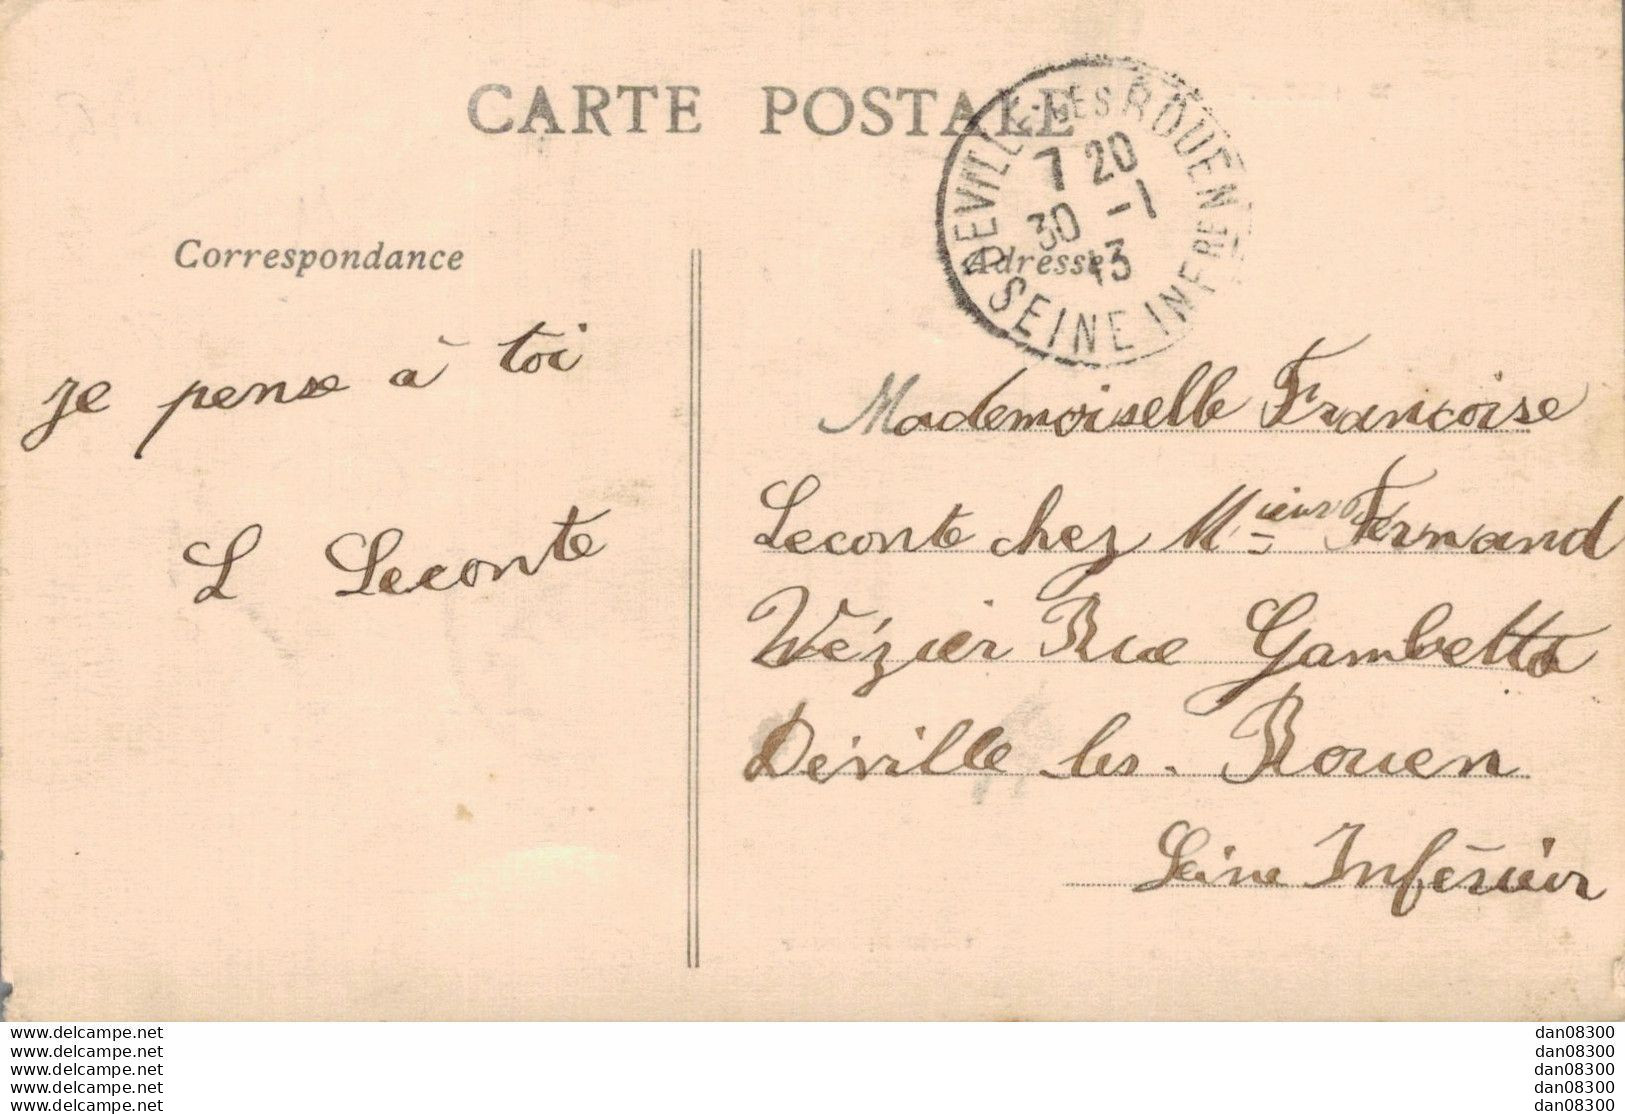 CARTE POSTALE
DEVILLE-LES ROUEN
7 20
30 -1
13
SEINE INFRE
Correspondance
Adresse
je pense à toi
L Leconte
Mademoiselle Francoise
Leconte chez Mieur Fernand
Wézier Rue Gambetta
Déville les Rouen
Seine Inférieur
www.delcampe.net
www.delcampe.net
www.delcampe.net
www.delcampe.net
www.delcampe.net
dan08300
dan08300
dan08300
dan08300
dan08300